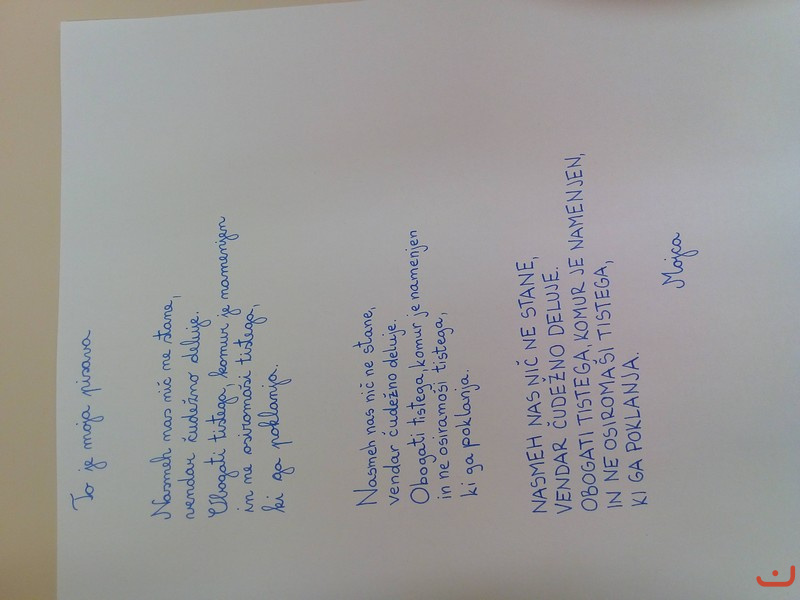 To je moja pisava
Nasmeh nas nič ne stane,
vendar čudežno deluje.
Obogati tistega, komur je namenjen
in ne osiromaši tistega,
ki ga poklanja.
Nasmeh nas nič ne stane,
vendar čudežno deluje.
Obogati tistega, komur je namenjen
in ne osiramoši tistega,
ki ga poklanja.
NASMEH NAS NIČ NE STANE,
VENDAR ČUDEŽNO DELUJE.
OBOGATI TISTEGA, KOMUR JE NAMENJEN,
IN NE OSIROMAŠI TISTEGA,
KI GA POKLANJA.
Mojca